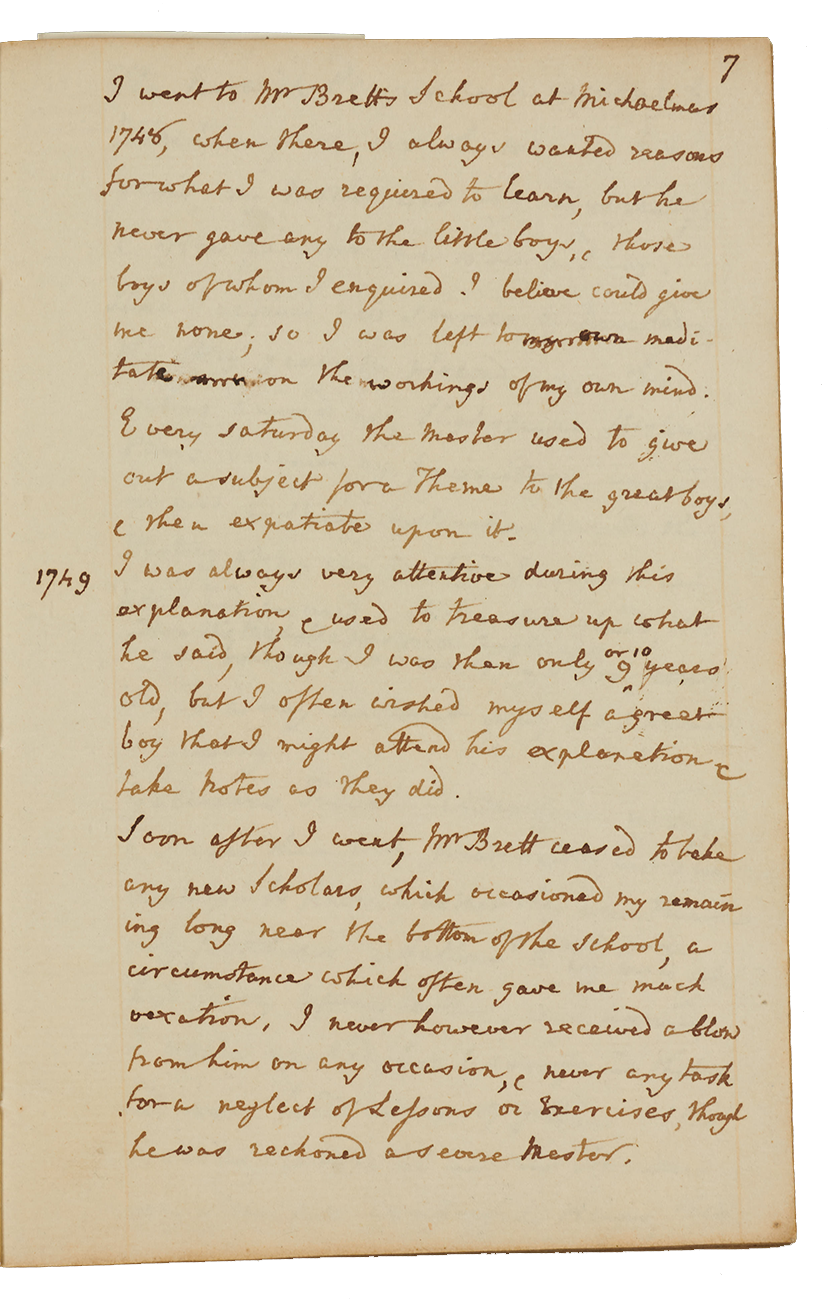 7
I went to Mr Bretts School at Michaelmas
1748, when there, I always wanted reasons
for what I was required to learn, but he
never gave any to the little boys, & those
boys of whom I enquired I believe could give
me none; so I was left to my own medi-
tate on the workings of my own mind.
Every saturday the Master used to give
out a subject for a Theme to the great boys,
& then expatiate upon it.
1749 I was always very attentive during this
explanation, & used to treasure up what
he said, though I was then only 9 or 10 years
old, but I often wished myself a great
boy that I might attend his explanation &
take Notes as they did.
Soon after I went, Mr Brett ceased to take
any new Scholars, which occasioned my remain
ing long near the bottom of the school, a
circumstance which often gave me much
vexation, I never however received a blow
from him on any occasion, & never any task
for a neglect of Lessons or Exercises, though
he was reckoned a severe Master.